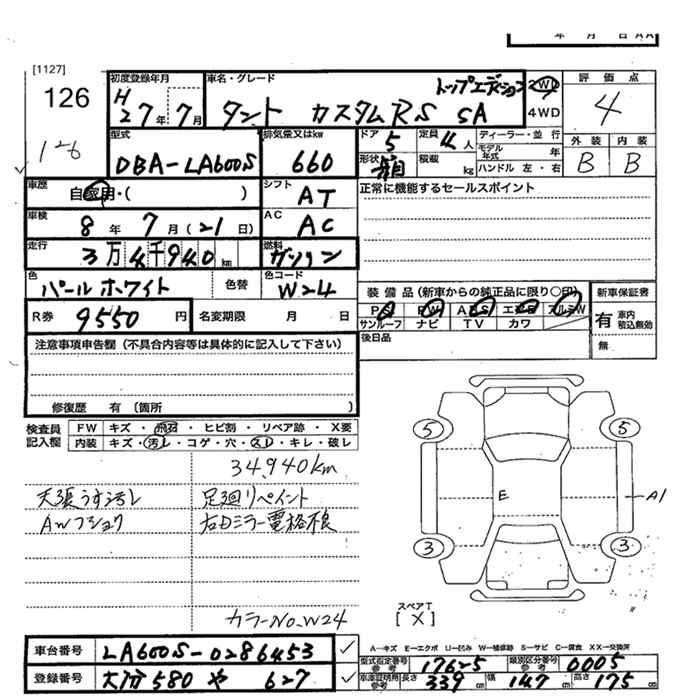 年 月 日 AA
[1127]
126
126
初度登録年月
H27年7月
車名・グレード
トップエディション
タント カスタムRS SA
2WD
4WD
評価点
4
外装 内装
B B
型式
DBA-LA600S
排気量又はkw
660
ドア 5
定員 4人
ディーラー・並行
モデル年式 年
形状 箱
積載 kg
ハンドル 左・右
車歴
自家用・( )
シフト
AT
正常に機能するセールスポイント
車検
8年7月(21日)
AC
AC
走行
3万4千940km
燃料
ガソリン
色
パールホワイト
色替
色コード
W24
装備品(新車からの純正品に限り○印)
PS PW ABS エアB アルミW
サンルーフ ナビ TV カワ
新車保証書
有 車内 積込無効
無
R券 9550円
名変期限 月 日
後日品
注意事項申告欄(不具合内容等は具体的に記入して下さい)
修復歴 有(箇所 )
検査員記入欄
FW キズ・飛石・ヒビ割・リペア跡・X要
内装 キズ・汚レ・コゲ・穴・スレ・キレ・破レ
34,940km
天張うす汚レ 足廻リペイント
AWフショク 右Dミラー電格不良
カラーNo.W24
5 5
E
A1
3 3
スペアT
[X]
車台番号 LA600S-0286453
登録番号 大分580 や 627
A-キズ E-エクボ U-凹み W-補修跡 S-サビ C-腐食 XX-交換済
型式指定番号 参考 17625
類別区分番号 参考 0005
車庫証明用 参考 長さ 339 幅 147 高さ 175 cm